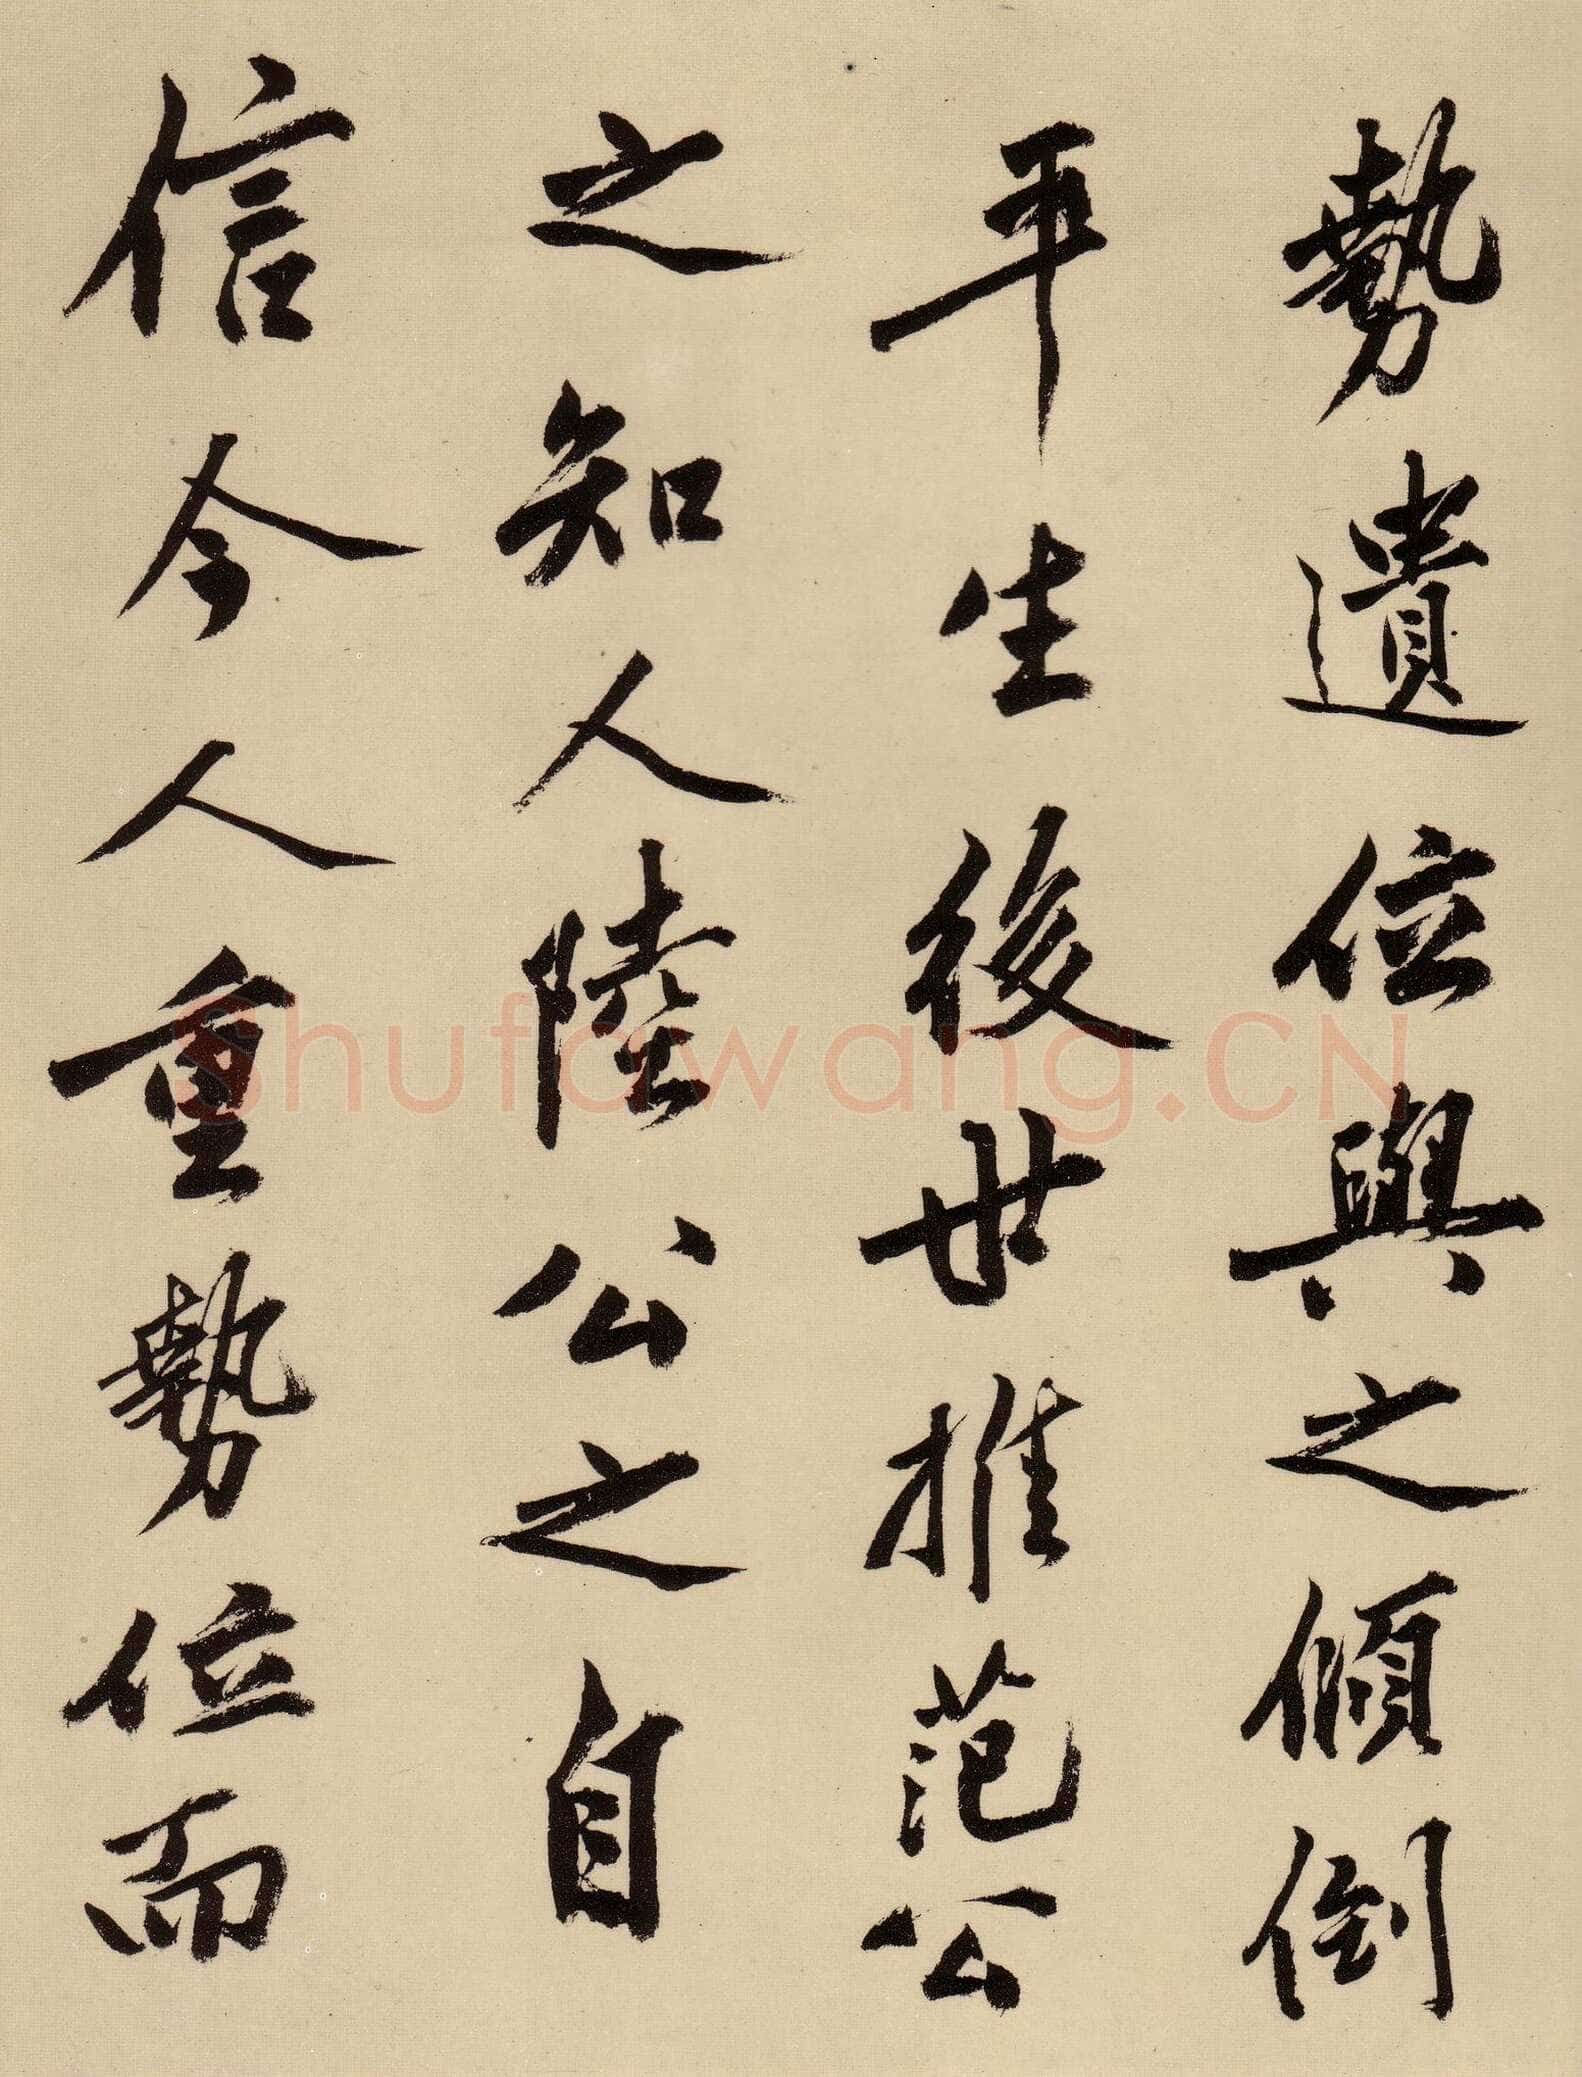 勢遺位與之傾倒
平生後世推范公
之知人陸公之自
信今人重勢位而
shufawang.CN